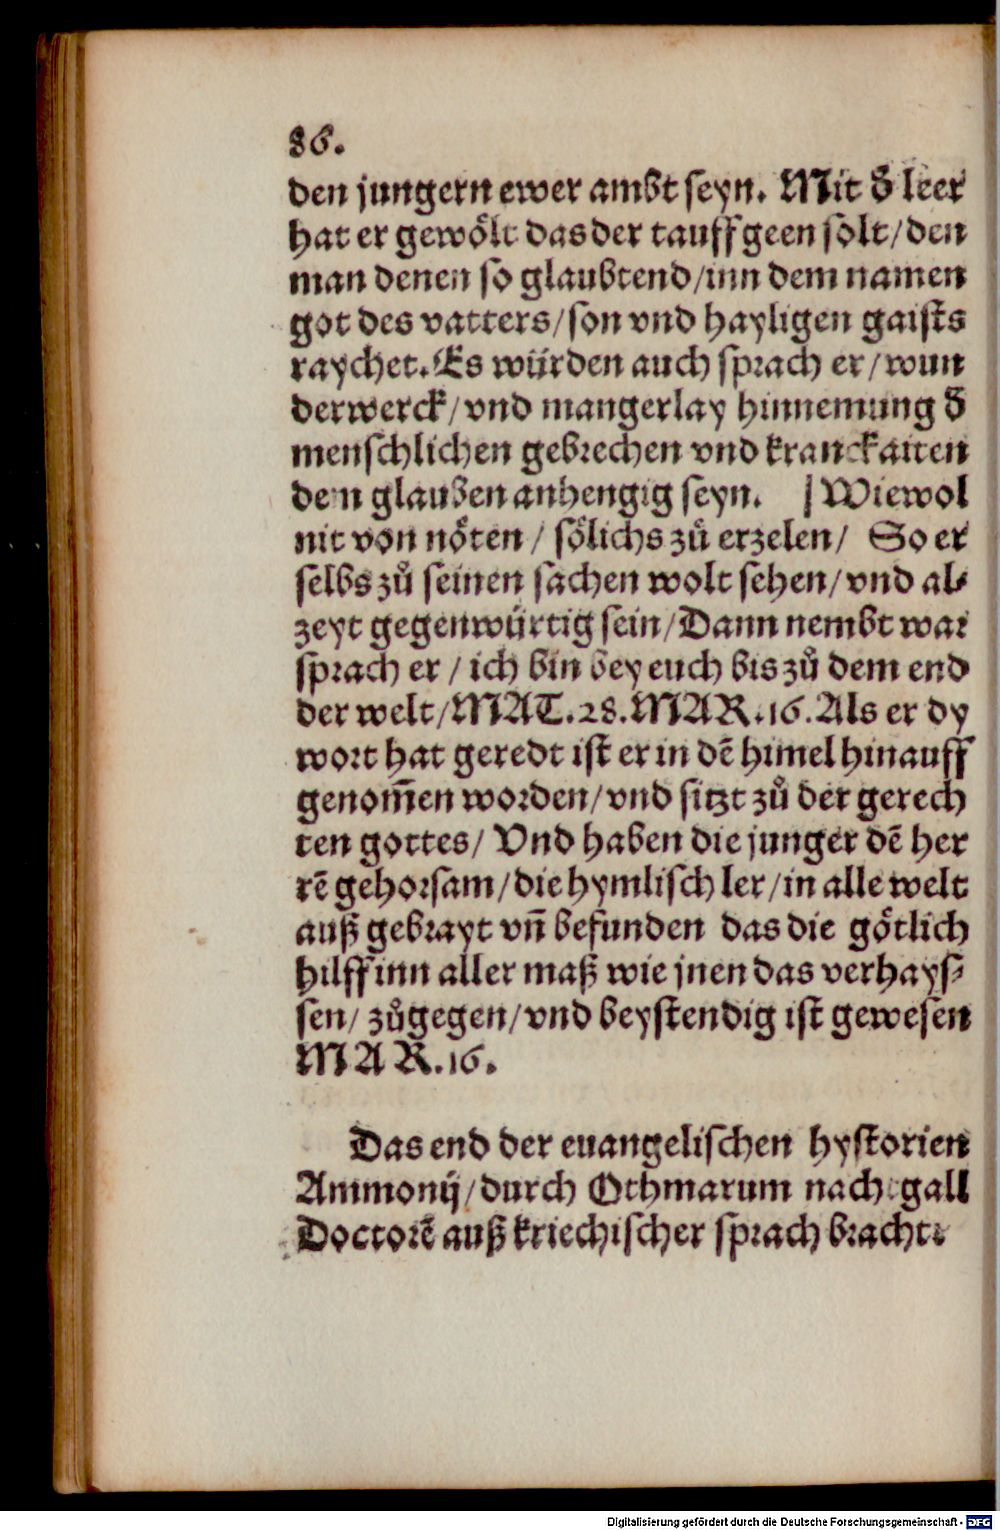 86.
den jungern ewer ambt seyn. Mit d̕ leer
hat er gewoͤlt das der tauff geen solt/den
man denen so glaubtend/inn dem namen
got des vatters/son vnd hayligen gaists
raychet. Es würden auch sprach er/wun
derwerck/vnd mangerlay hinnemung d̕
menschlichen gebrechen vnd kranckaiten
dem glauben anhengig seyn. ∫ Wiewol
nit von noͤten / soͤlichs zů erzelen/ So er
selbs zů seinen sachen wolt sehen/vnd al⸗
zeyt gegenwürtig sein/Dann nembt war
sprach er / ich bin bey euch bis zů dem end
der welt/MAT.28.MAR.16.Als er dy
wort hat geredt ist er in dē himel hinauff
genom̄en worden/vnd sitzt zů der gerech
ten gottes/ Vnd haben die junger dē her
rē gehorsam/die hymlisch ler/in alle welt
auß gebrayt vn̄ befunden das die goͤtlich
hilff inn aller maß wie jnen das verhays⸗
sen/ zůgegen/vnd beystendig ist gewesen
MAR.16.
Das end der euangelischen hystorien
Ammonij/durch Othmarum nachtgall
Doctorē auß kriechischer sprach bracht.
Digitalisierung gefördert durch die Deutsche Forschungsgemeinschaft - DFG